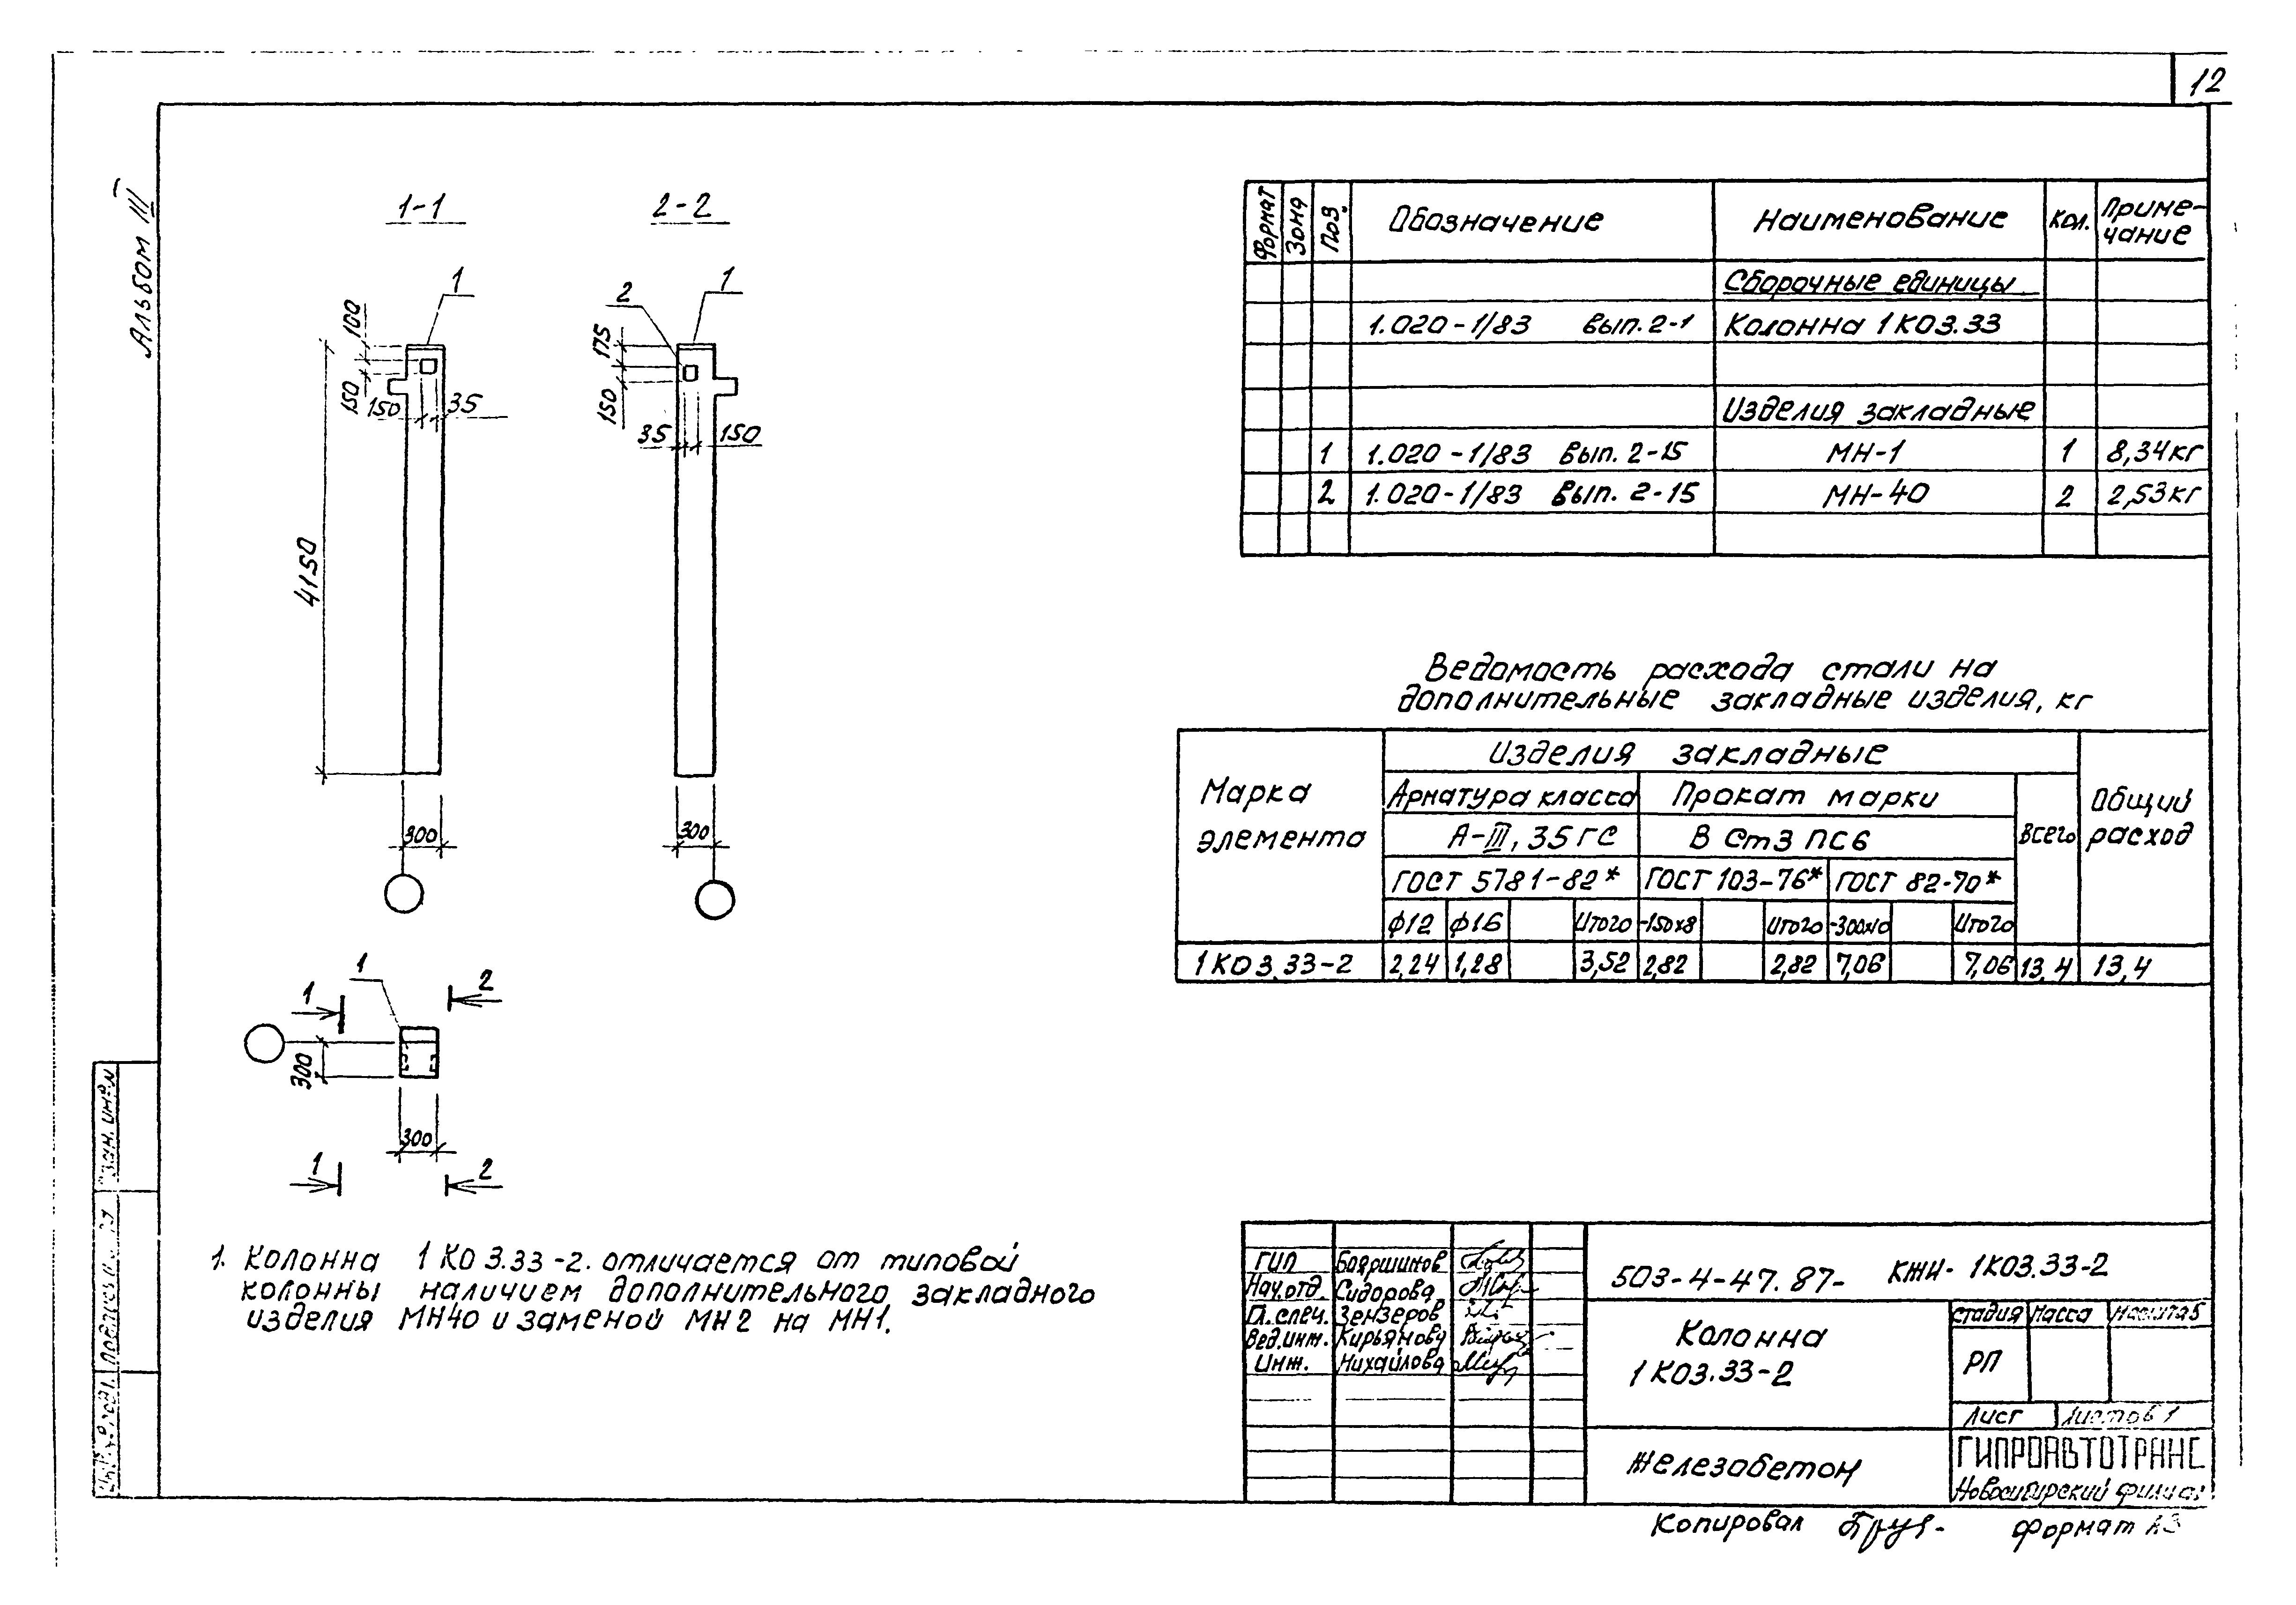 12
Альбом III
1-1
2-2
1
100
150
150
35
4150
300
2
1
175
150
35
150
300
1
1
2
300
300
1
2
1. Колонна 1КО3.33-2. отличается от типовой
колонны наличием дополнительного закладного
изделия МН40 и заменой МН2 на МН1.
Формат Зона Поз. Обозначение Наименование Кол. Приме-
чание
Сборочные единицы
1.020-1/83 вып. 2-1 Колонна 1КО3.33
Изделия закладные
1 1.020-1/83 вып. 2-15 МН-1 1 8,34кг
2 1.020-1/83 вып. 2-15 МН-40 2 2,53кг
Ведомость расхода стали на
дополнительные закладные изделия, кг
Марка
элемента
Изделия закладные
Общий
расход
Арматура класса Прокат марки
Всего
А-III, 35ГС В Ст3 ПС6
ГОСТ 5781-82* ГОСТ 103-76* ГОСТ 82-70*
ф12 ф16 Итого -150х8 Итого -300х10 Итого
1КО3.33-2 2,24 1,28 3,52 2,82 2,82 7,06 7,06 13,4 13,4
ГИП Бояршинов
Нач.отд. Сидорова
Гл.спец. Зензеров
Вед.инж. Кирьянова
Инж. Михайлова
503-4-47.87- КЖИ-1КО3.33-2
Колонна
1КО3.33-2
Стадия Масса Масштаб
РП
Лист Листов 1
Железобетон
ГИПРОАВТОТРАНС
Новосибирский филиал
Копировал Формат А3
Взам. инв.№